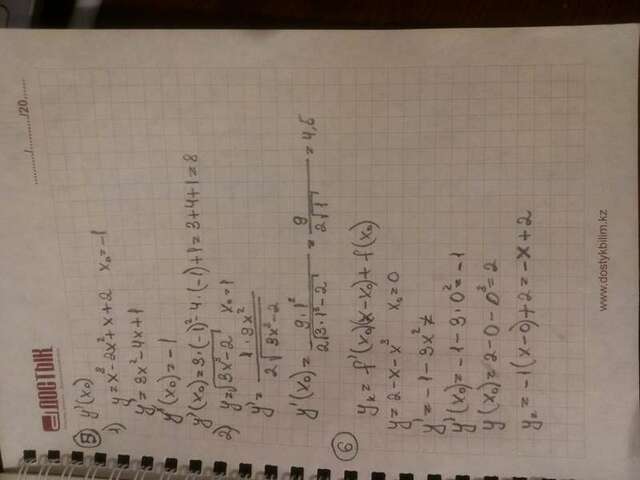 ......./......./20.......
ДОСТЫК
5 y'(x₀)
1) y=x³-2x²+x+2 x₀=-1
y'=3x²-4x+1
y'(x₀)=-1
y'(x₀)=3·(-1)²-4·(-1)+1=3+4+1=8
2) y=√(3x³-2) x₀=1
y'= (1·9x²)/(2√(3x³-2))
y'(x₀)= (9·1²)/(2√(3·1³-2)) = 9/(2√1) =4,5
6 yₖ=f'(x₀)(x-x₀)+f(x₀)
y=2-x-x³ x₀=0
y'=-1-3x²
y'(x₀)=-1-3·0²=-1
y(x₀)=2-0-0³=2
y=-1(x-0)+2=-x+2
www.dostykbilim.kz